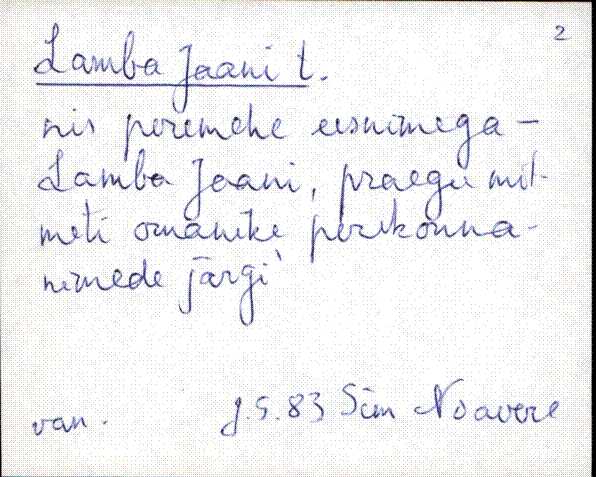 2
Lamba Jaani t.
nis peremehe eesnimega –
Lamba Jaani, praegu mit-
meti omanike perekonna-
nimede järgi
van. J.S. 83 Sim Noavere